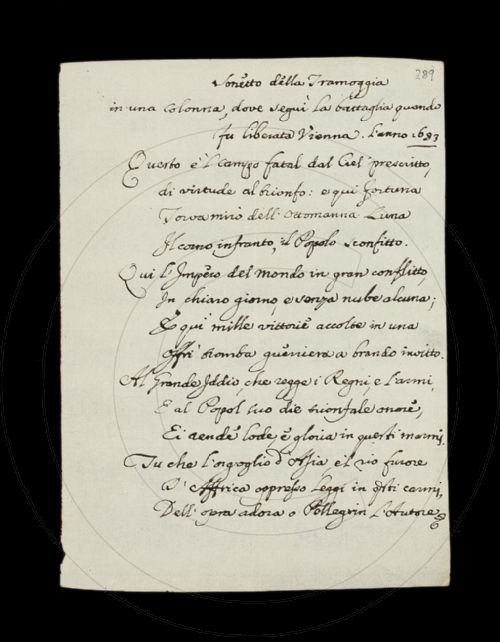 289
Sonetto della Tramoggia
in una Colonna, dove seguì la battaglia quando
fu liberata Vienna. L'anno 1683
Questo è il Campo fatal dal Ciel prescritto,
di virtude al trionfo: e qui Fortuna
Torva mirò dell'Ottomanna Luna
Il corno infranto, il Popolo sconfitto.
Qui l'Impero del Mondo in gran conflitto,
In chiaro giorno, e senza nube alcuna;
E qui mille vittorie accolte in una
Offrì tromba guerriera a brando invitto.
Al Grande Iddio, che regge i Regni, e l'armi,
E al Popol suo diè trionfale onore,
Ei rende lode, e gloria in questi marmi.
Tu che l'orgoglio d'Asia e'l rio furore
D'Affrica oppresso leggi in qsti carmi,
Dell'opra adora o Pellegrin l'Autore